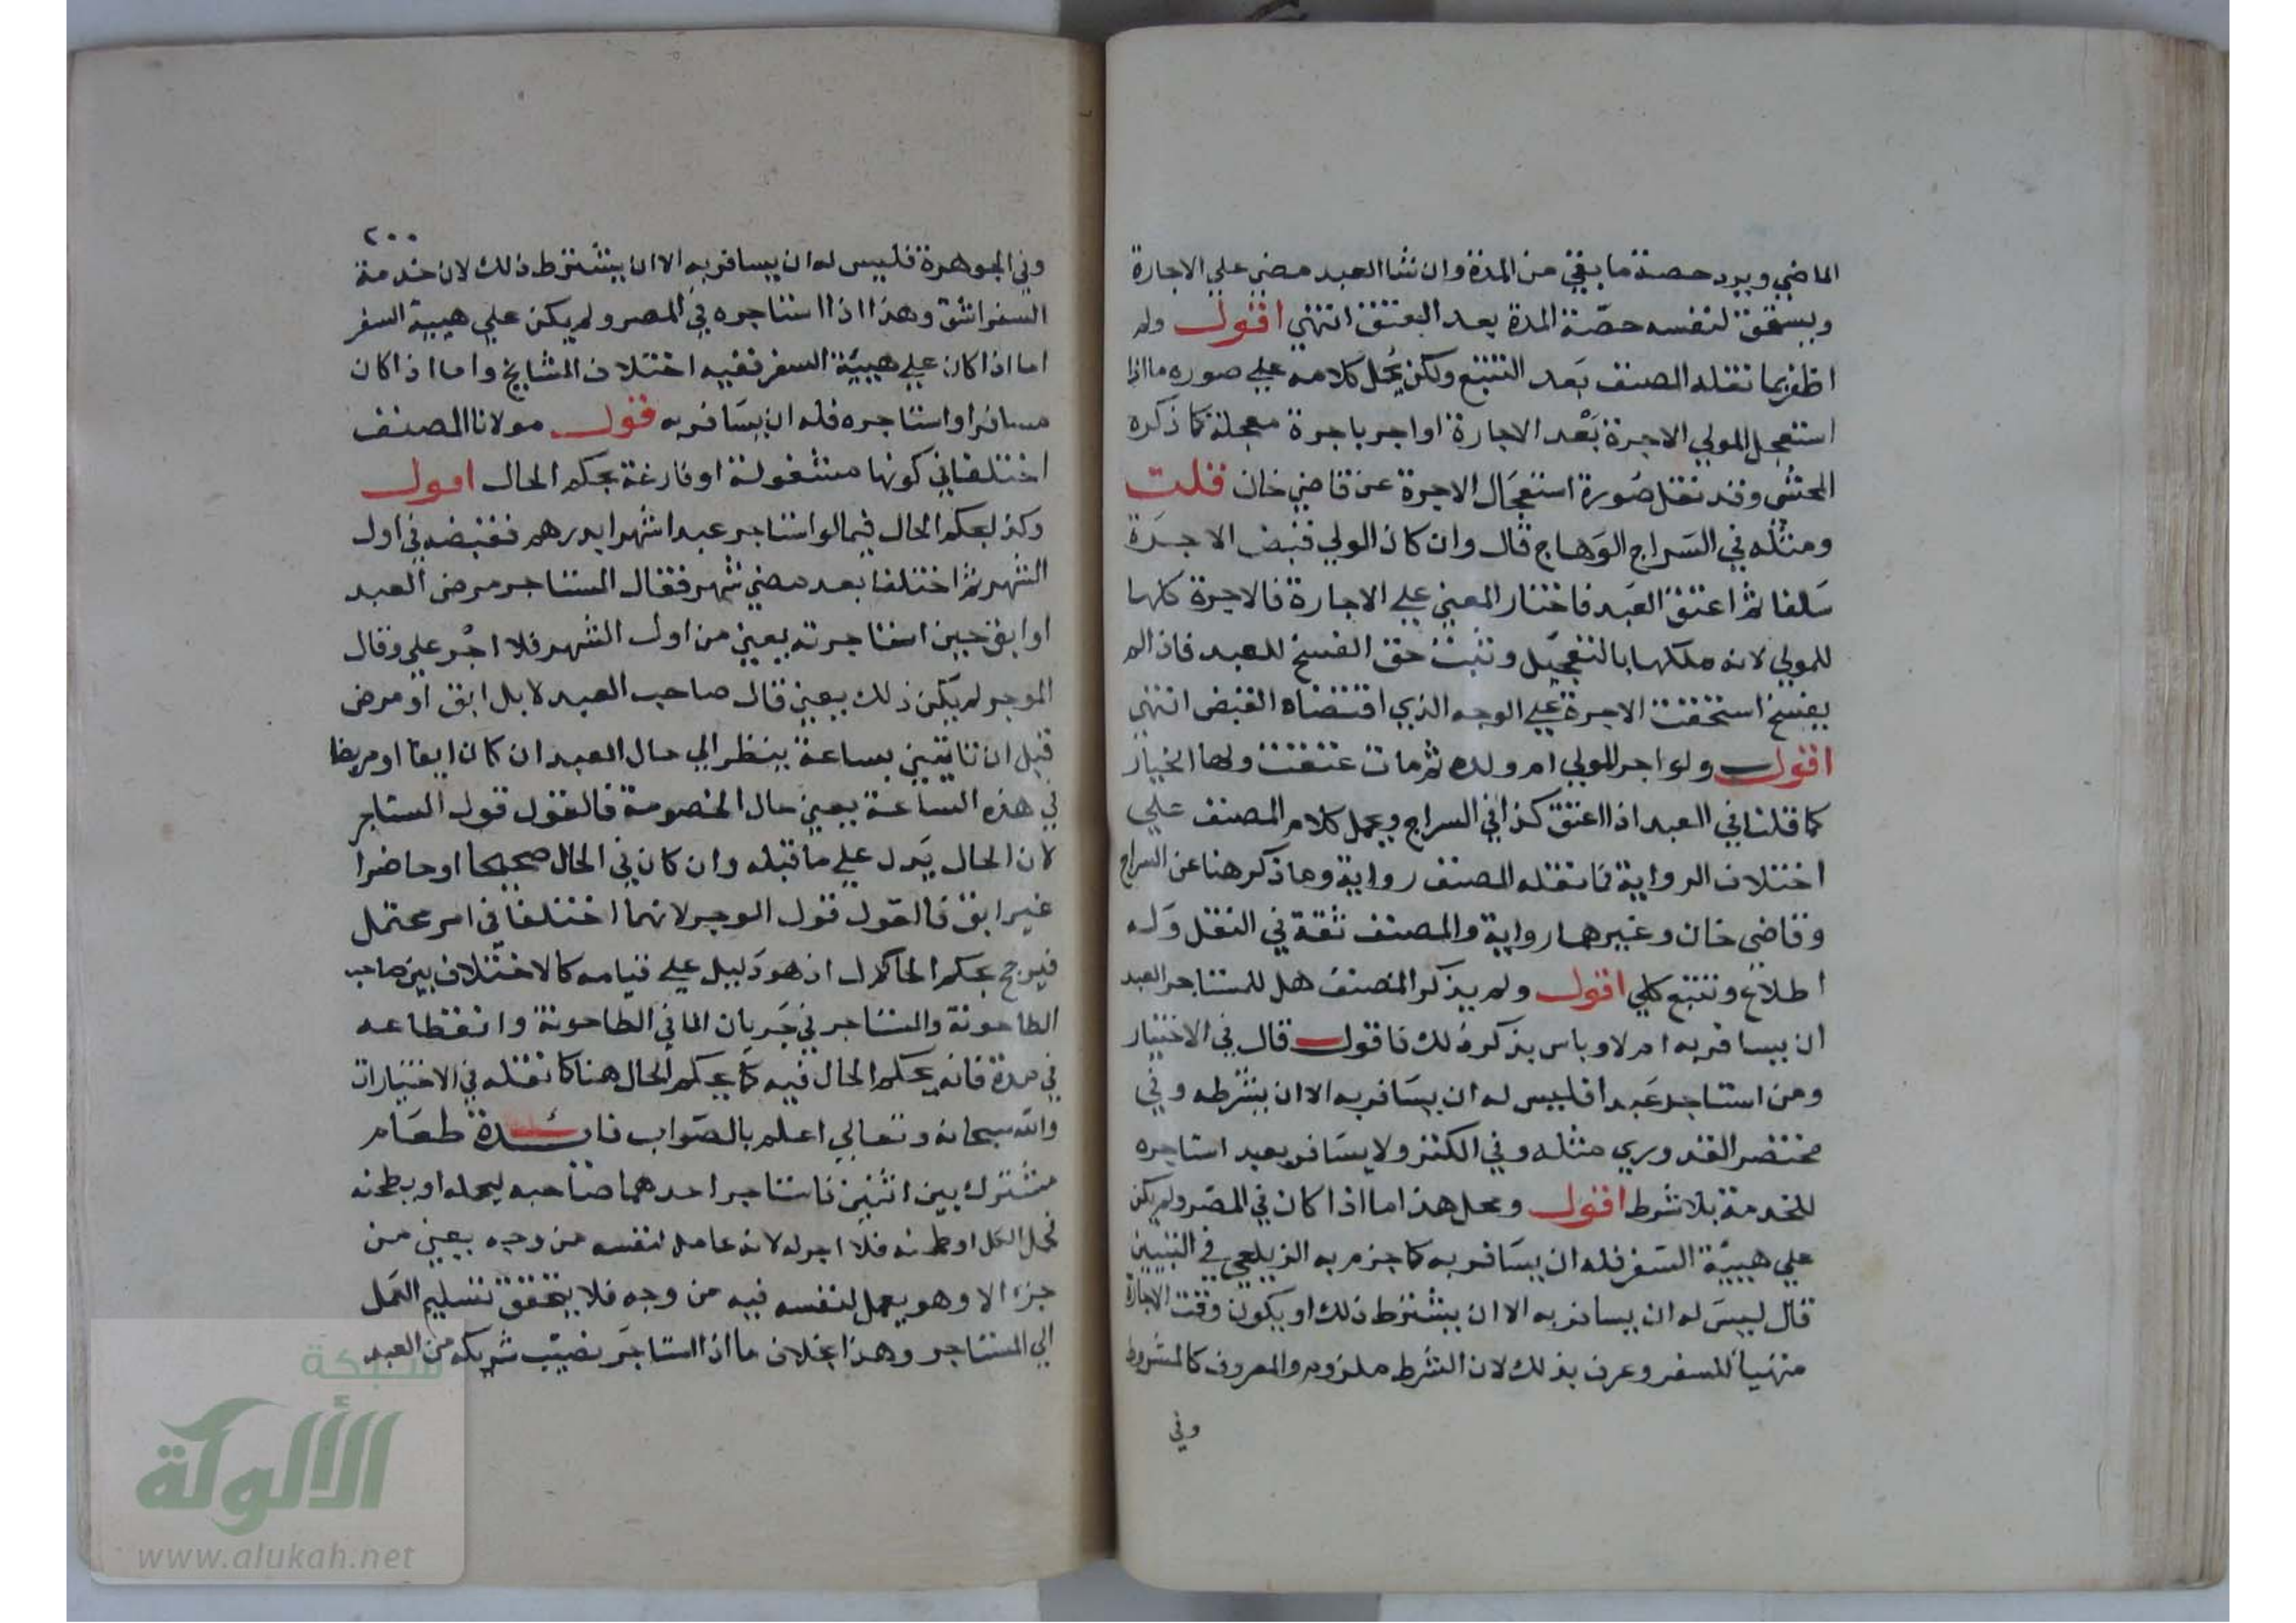 الماضي ويرد حصة ما بقي من المدة وان شا العبد مضي علي الاجارة
ويستحق لنفسه حصة المدة بعد العتق انتهي اقول ولم
اظفر بما نقله المصنف بعد التتبع ولكن يحمل كلامه علي صوره ما اذا
استعجل المولي الاجرة بعد الاجارة او اجر باجرة معجلة كما ذكره
المحشي وقد نقل صورة استعجال الاجرة عن قاضي خان قلت
ومثله في السراج الوهاج قال وان كان المولي قبض الاجرة
سلفا ثم اعتق العبد فاختار المضي علي الاجارة فالاجرة كلها
للمولي لانه ملكها بالتعجيل وتثبت حق الفسخ للعبد فاذا لم
يفسخ استحقت الاجرة علي الوجه الذي اقتضاه القبض انتهي
اقول ولو اجر المولي ام ولده ثم مات عتقت ولها الخيار
كما قلنا في العبد اذا اعتق كذا في السراج ويحمل كلام المصنف علي
اختلاف الرواية فما نقله المصنف رواية وما ذكر هنا عن السراج
وقاضي خان وغيرهما رواية والمصنف ثقة في النقل وله
اطلاع وتتبع كلي اقول ولم يذكر المصنف هل للمستاجر العبد
ان يسافر به ام لا وباس بذكر ذلك فاقول قال في الاختيار
ومن استاجر عبدا فليس له ان يسافر به الا ان يشرطه وفي
مختصر القدوري مثله وفي الكنز ولا يسافر بعبد استاجره
للخدمة بلا شرط اقول ومحل هذا اما اذا كان في المصر ولم يكن
علي هيية السفر فله ان يسافر به كما جزم به الزيلعي في التبيين
قال ليس له ان يسافر به الا ان يشترط ذلك او يكون وقت الاجارة
متهيأ للسفر وعرف بذلك لان الشرط ملزوم والمعروف كالمشروط
وفي
٢٠٠
وفي الجوهرة فليس له ان يسافر به الا ان يشترط ذلك لان خدمة
السفر اشق وهذا اذا استاجره في المصر ولم يكن علي هيية السفر
اما اذا كان علي هيية السفر ففيه اختلاف المشايخ واما اذا كان
مسافرا واستاجره فله ان يسافر به قول مولانا المصنف
اختلفا في كونها مشغولة او فارغة بحكم الحال اقول
وكذا يحكم الحال فيما لو استاجر عبدا شهرا بدرهم فقبضه في اول
الشهر ثم اختلفا بعد مضي شهر فقال المستاجر مرض العبد
او ابق حين استاجرته يعني من اول الشهر فلا اجر علي وقال
الموجر لم يكن ذلك يعني قال صاحب العبد لا بل ابق او مرض
قبل ان تاتيني بساعة ينظر الي حال العبد ان كان ابقا او مريضا
في هذه الساعة يعني حال الخصومة فالقول قول المستاجر
لان الحال يدل علي ما قبله وان كان في الحال صحيحا او حاضرا
غير ابق فالقول قول الموجر لانهما اختلفا في امر محتمل
فيرجح بحكم الحال اذ هو دليل علي قيامه كالاختلاف بين صاحب
الطاحونة والمستاجر في جريان الما في الطاحونة وانقطاعه
في مدة فانه يحكم الحال فيه كما يحكم الحال هنا كما نقله في الاختيارات
والله سبحانه وتعالي اعلم بالصواب فايدة طعام
مشترك بين اثنين فاستاجر احدهما صاحبه ليحمله او يطحنه
فحمل الكل او طحنه فلا اجر له لانه عامل لنفسه من وجه يعني من
جزء الا وهو يعمل لنفسه فيه من وجه فلا يتحقق تسليم العمل
الي المستاجر وهذا بخلاف ما اذا استاجر نصيب شريكه من العبد
شبكة
الألوكة
www.alukah.net